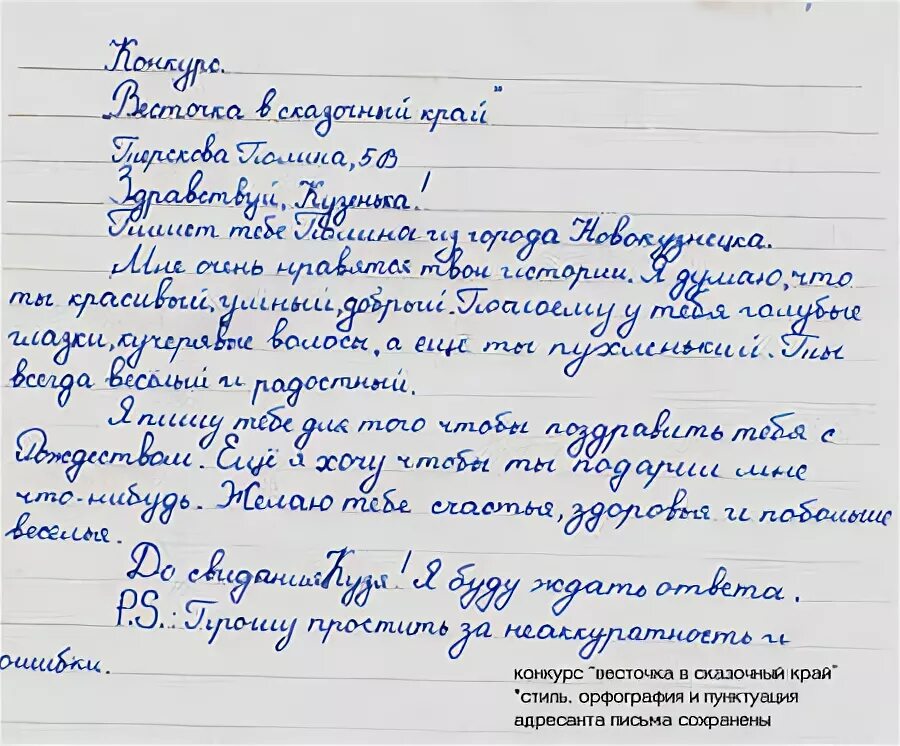 Конкурс.
„Весточка в сказочный край"
Терскова Полина, 5В
Здравствуй, Кузенька!
Пишет тебе Полина из города Новокузнецка.
Мне очень нравятся твои истории. Я думаю, что
ты красивый, умный, добрый. Помоему у тебя голубые
глазки, кучерявые волосы, а ещё ты пухленький. Ты
всегда весёлый и радостный.
Я пишу тебе для того чтобы поздравить тебя с
Рождеством. Ещё я хочу чтобы ты подарил мне
что-нибудь. Желаю тебе счастья, здоровья и побольше
веселья.
До свидания Кузя! Я буду ждать ответа.
P.S.: Прошу простить за неаккуратность и
ошибки.
конкурс "весточка в сказочный край"
*стиль, орфография и пунктуация
адресанта письма сохранены